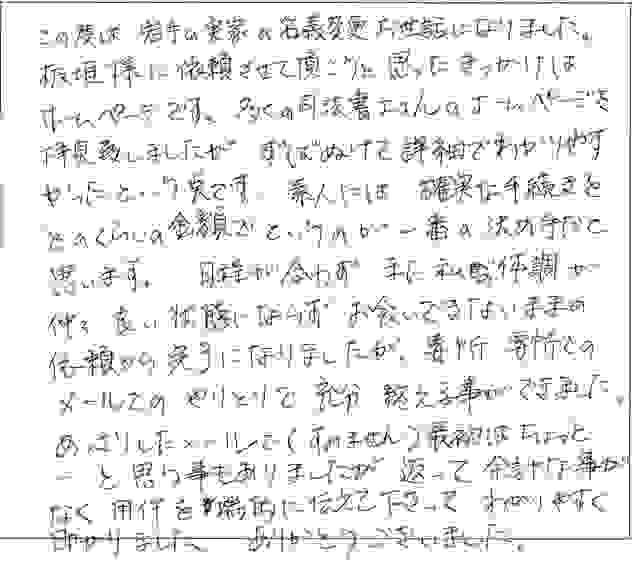 この度は 岩手の実家の名義変更お世話になりました。
板垣様に依頼させて頂こうと思ったきっかけは
ホームページです。多くの司法書士さんのホームページを
拝見致しましたが ずばぬけて詳細でわかりやす
かったという点です。素人には 確実な手続きを
どのくらいの金額でというのが一番の決め手だと
思います。 日程が合わず 又に私の体調が
仲々良い状態にならず お会いできないままの
依頼から完了になりましたが、要所要所での
メールでのやりとりで 無事終える事ができました。
あっさりしたメールで(すみません)最初はちょっと
ーと思う事もありましたが 返って余計な事が
なく 用件を端的に伝えて下さって わかりやすく
助かりました。 ありがとうございました。